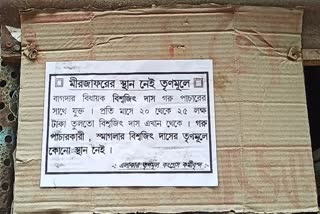 মীরজাফরের স্থান নেই তৃণমূলে
বাগদার বিধায়ক বিশ্বজিৎ দাস গরু পাচারের
সাথে যুক্ত । প্রতি মাসে ২০ থেকে ২৫ লক্ষ
টাকা তুলতো বিশ্বজিৎ দাস এখান থেকে । গরু
পাচারকারী , স্মাগলার বিশ্বজিৎ দাসের তৃণমূলে
কোনো স্থান নেই ।
-: এলাকার তৃণমূল কংগ্রেস কর্মীবৃন্দ :-